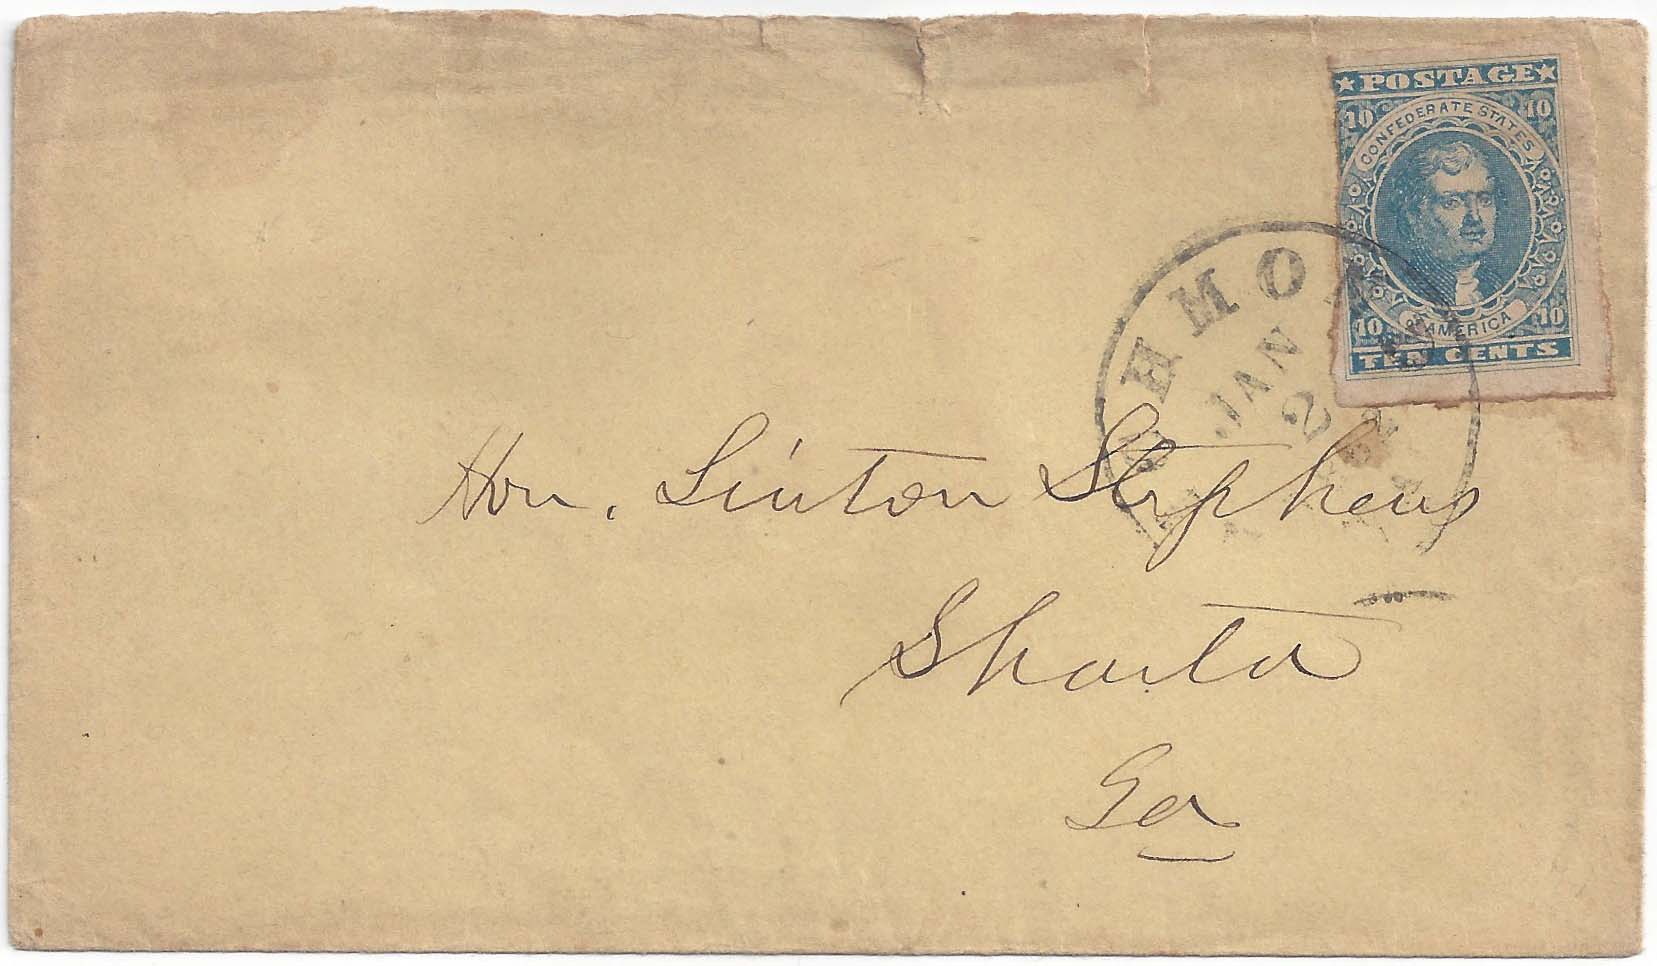 ★ POSTAGE ★
10 10
CONFEDERATE STATES
OF AMERICA
10 10
TEN CENTS
RICHMOND
JAN
2
Hon. Linton Stephens
Sparta
Ga